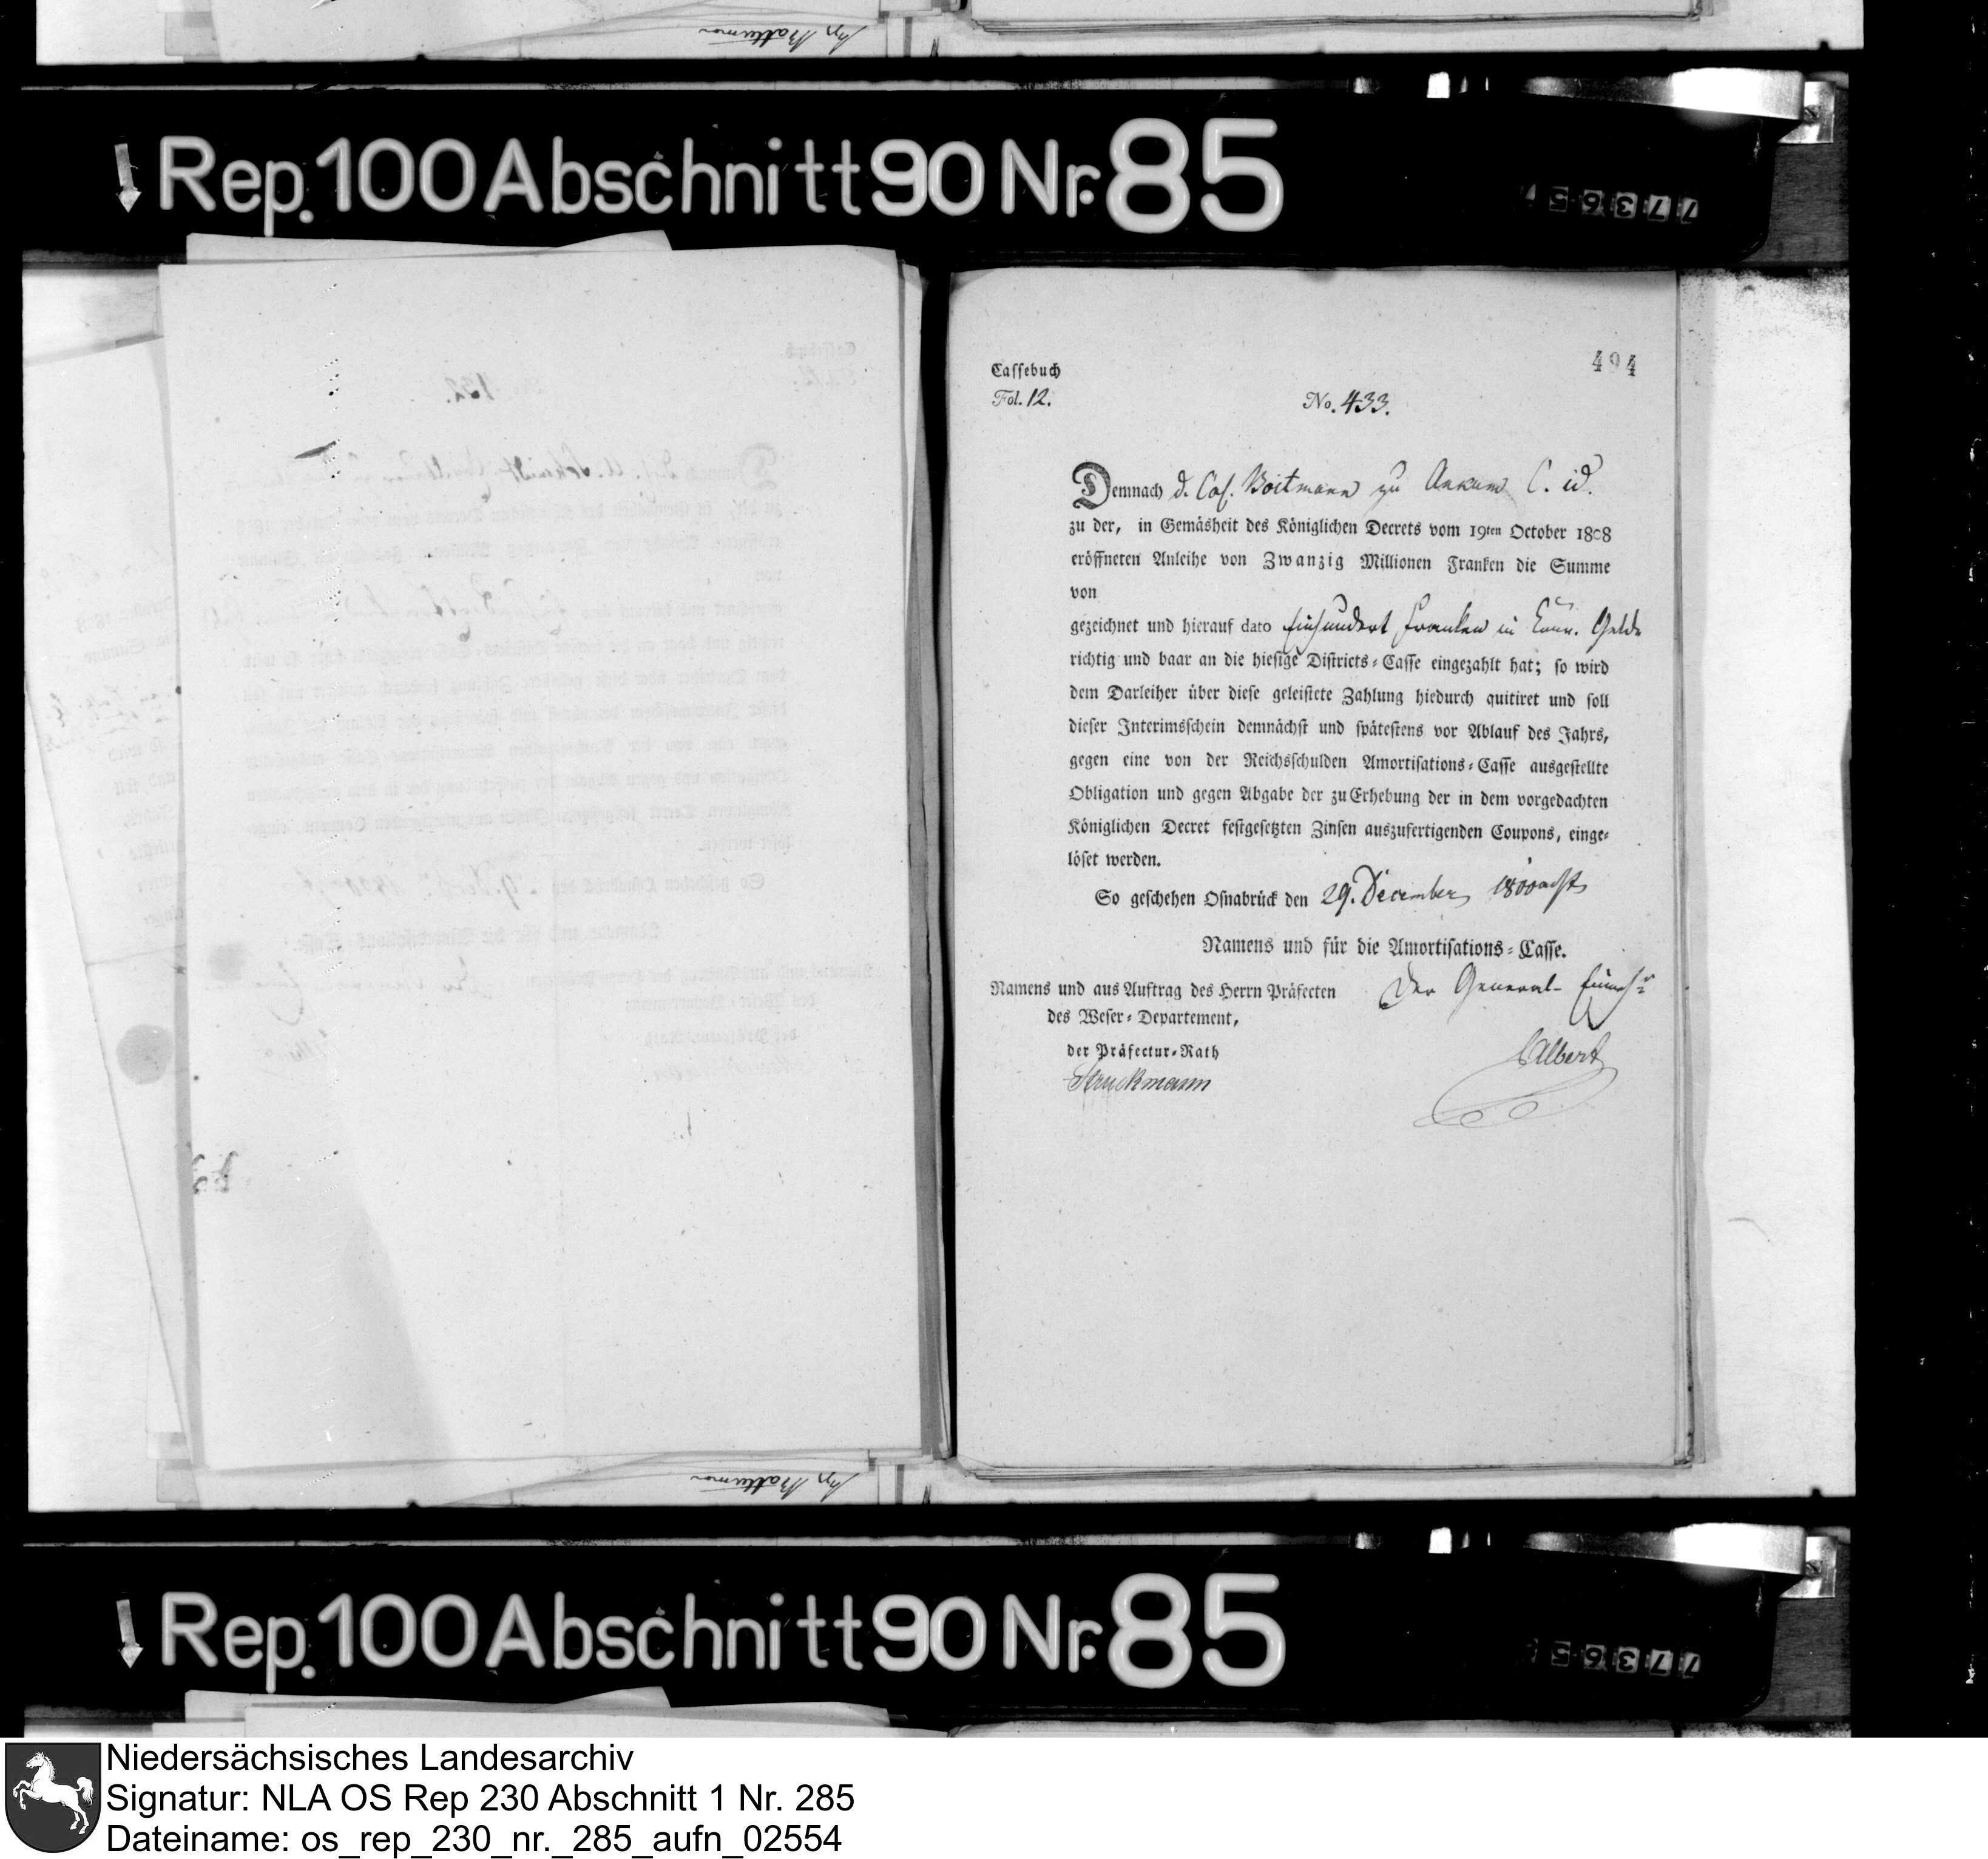 Rep.100 Abschnitt 90 Nr. 85
77365
494
Cassebuch
Fol. 12.
No. 433.
Demnach d. Col. Boitmann zu Ankum C. id.
zu der, in Gemäsheit des Königlichen Decrets vom 19ten October 1808
eröffneten Anleihe von Zwanzig Millionen Franken die Summe
von
gezeichnet und hierauf dato Einhundert Franken in Conv. Gelde
richtig und baar an die hiesige Districts-Casse eingezahlt hat; so wird
dem Darleiher über diese geleistete Zahlung hiedurch quitiret und soll
dieser Interimsschein demnächst und spätestens vor Ablauf des Jahrs,
gegen eine von der Reichsschulden Amortisations-Casse ausgestellte
Obligation und gegen Abgabe der zu Erhebung der in dem vorgedachten
Königlichen Decret festgesetzten Zinsen auszufertigenden Coupons, einge-
löset werden.
So geschehen Osnabrück den 29. December 1800acht
Namens und für die Amortisations-Casse.
Namens und aus Auftrag des Herrn Präfecten
des Weser-Departement,
der Präfectur-Rath
Struckmann
Der General-
Albert
Rep.100 Abschnitt 90 Nr. 85
77365
Niedersächsisches Landesarchiv
Signatur: NLA OS Rep 230 Abschnitt 1 Nr. 285
Dateiname: os_rep_230_nr._285_aufn_02554